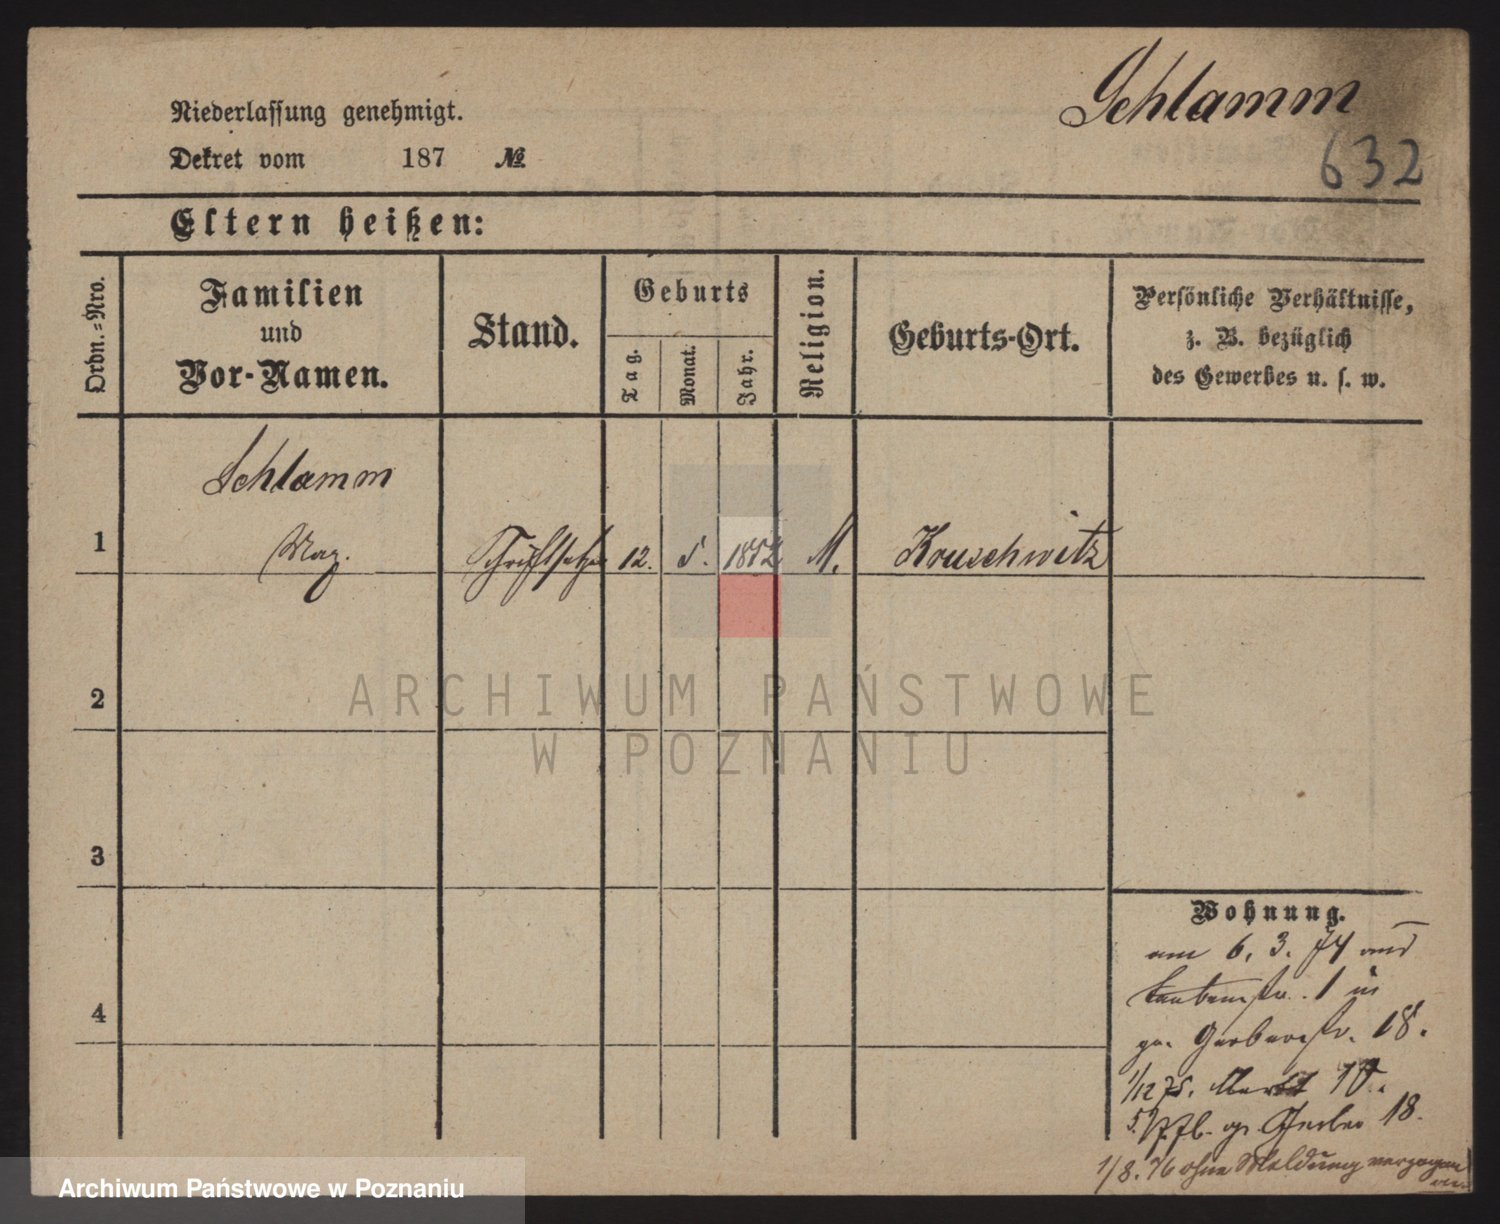 Schlamm
632
Niederlassung genehmigt.
Dekret vom 187 №
Eltern heißen:
Ordn.=Nro.
Familien
und
Vor-Namen.
Stand.
Geburts
Tag.
Monat.
Jahr.
Religion.
Geburts-Ort.
Persönliche Verhältnisse,
z. B. bezüglich
des Gewerbes u. s. w.
Schlamm
1 Max. Schriftsetzer 12. 5. 1852 M. Kruschwitz
2
3
4
Wohnung.
am 6. 3. 74 aus
1 in
gr. Gerberstr. 18.
1/12 75. Markt
gr. Gerber 18.
1/8. 76 ohne Meldung verzogen
ARCHIWUM PAŃSTWOWE
W POZNANIU
Archiwum Państwowe w Poznaniu